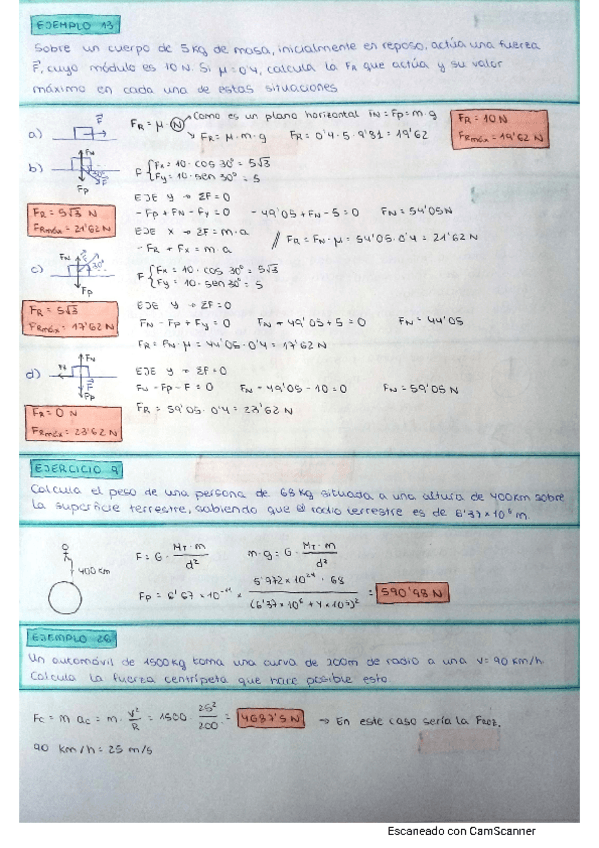 EJEMPLO 13
Sobre un cuerpo de 5 kg de masa, inicialmente en reposo, actúa una fuerza
F⃗, cuyo módulo es 10 N. Si μ=0'4, calcula la FR que actúa y su valor
máximo en cada una de estas situaciones
a) F⃗ FR = μ · N → Como es un plano horizontal FN = Fp = m·g
→ FR = μ·m·g FR = 0'4·5·9'81 = 19'62
FR = 10N
FRmáx = 19'62 N
b) FN 30° F Fp F { Fx = 10·cos 30° = 5√3
Fy = 10·sen 30° = 5
EJE y → ΣF=0
-Fp + FN - Fy = 0 -49'05 + FN - 5 = 0 FN = 54'05N
EJE x → ΣF = m·a
-FR + Fx = m·a // FR = FN·μ = 54'05·0'4 = 21'62 N
FR = 5√3 N
FRmáx = 21'62 N
c) FN F 30° Fp F { Fx = 10·cos 30° = 5√3
Fy = 10·sen 30° = 5
EJE y → ΣF=0
FN - Fp + Fy = 0 FN - 49'05 + 5 = 0 FN = 44'05
FR = FN·μ = 44'05·0'4 = 17'62 N
FR = 5√3
FRmáx = 17'62 N
d) FN F⃗ Fp EJE y → ΣF=0
FN - Fp - F = 0 FN - 49'05 - 10 = 0 FN = 59'05 N
FR = 59'05·0'4 = 23'62 N
FR = 0 N
FRmáx = 23'62 N
EJERCICIO 9
Calcula el peso de una persona de 68 kg situada a una altura de 400 km sobre
la superficie terrestre, sabiendo que el radio terrestre es de 6'37×10⁶ m.
400 km F = G · MT·m / d² m·g = G · MT·m / d²
Fp = 6'67×10⁻¹¹ × 5'972×10²⁴ · 68 / (6'37×10⁶ + 4×10⁵)² = 590'98 N
EJEMPLO 26
Un automóvil de 1500 kg toma una curva de 200m de radio a una v = 90 km/h.
Calcula la fuerza centrípeta que hace posible esto
Fc = m ac = m · v²/R = 1500 · 25²/200 = 4687'5 N → En este caso sería la Froz.
90 km/h = 25 m/s
Escaneado con CamScanner